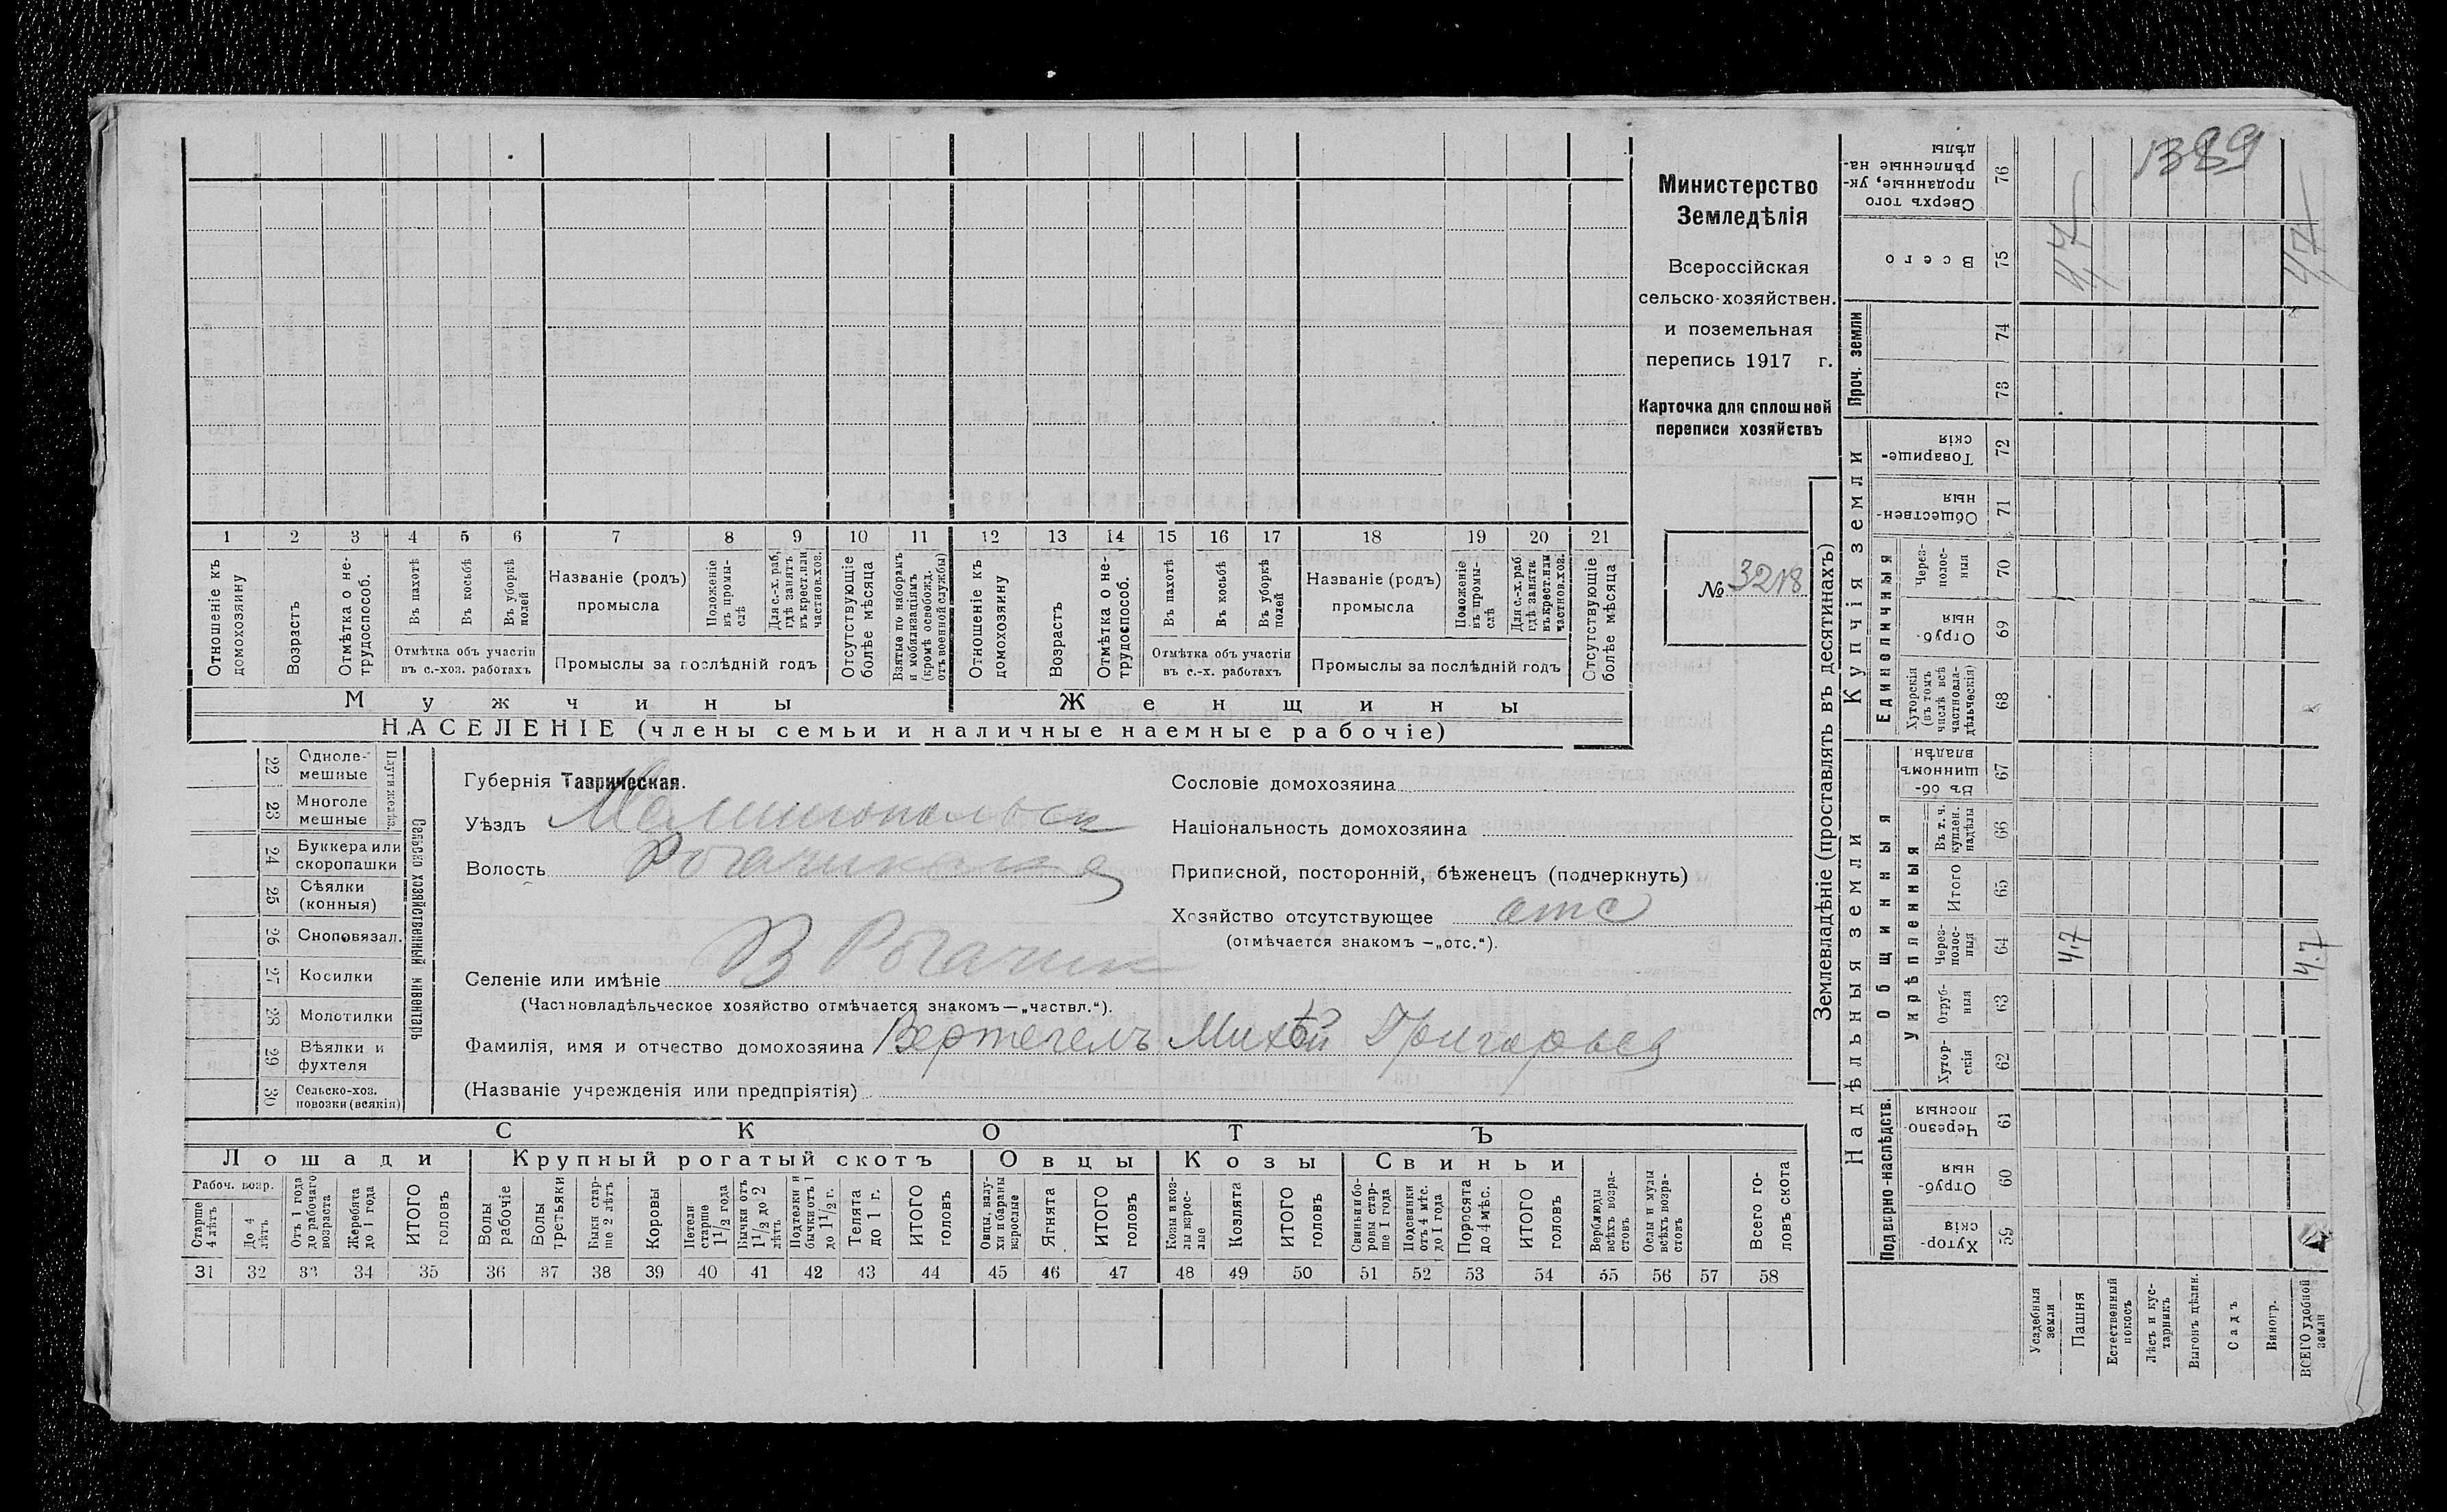 1389
Министерство
Земледѣлія
Всероссійская
сельско-хозяйствен.
и поземельная
перепись 1917 г.
Карточка для сплошной
переписи хозяйствъ
№ 3218
1 2 3 4 5 6 7 8 9 10 11 12 13 14 15 16 17 18 19 20 21
Отношеніе къ домохозяину
Возрастъ
Отмѣтка о не-трудоспособ.
Въ пахотѣ
Въ косьбѣ
Въ уборкѣ полей
Отмѣтка объ участіи
въ с.-хоз. работахъ
Названіе (родъ)
промысла
Положеніе въ промы-слѣ
Для с.-х. раб, гдѣ занятъ въ крест. или частнов. хоз.
Промыслы за послѣдній годъ
Отсутствующіе болѣе мѣсяца
Взятые по наборамъ и мобилизаціямъ (кромѣ освобожд. отъ военной службы)
Отношеніе къ домохозяину
Возрастъ
Отмѣтка о не-трудоспособ.
Въ пахотѣ
Въ косьбѣ
Въ уборкѣ полей
Отмѣтка объ участіи
въ с.-х. работахъ
Названіе (родъ)
промысла
Положеніе въ промы-слѣ
Для с.-х. раб гдѣ занята въ крест. или частнов. хоз.
Промыслы за послѣдній годъ
Отсутствующіе болѣе мѣсяца
Мужчины
Женщины
НАСЕЛЕНІЕ (члены семьи и наличные наемные рабочіе)
22 Одноле-мешные
23 Многоле мешные
Плуги желѣз.
24 Буккера или скоропашки
25 Сѣялки (конныя)
26 Сноповязал.
27 Косилки
28 Молотилки
29 Вѣялки и фухтеля
30 Сельско-хоз. повозки (всякія)
Сельско хозяйственный инвентарь
Губернія Таврическая.
Уѣздъ Мелитопольск
Волость Рогачикская
Селеніе или имѣніе В Рогачик
(Частновладѣльческое хозяйство отмѣчается знакомъ — „частвл.“).
Фамилія, имя и отчество домохозяина Вертегелъ Григорьев
(Названіе учрежденія или предпріятія)
Сословіе домохозяина
Національность домохозяина
Приписной, посторонній, бѣженецъ (подчеркнуть)
Хозяйство отсутствующее отс
(отмѣчается знакомъ — „отс.“).
СКОТЪ
Лошади
Крупный рогатый скотъ
Овцы
Козы
Свиньи
Рабоч. возр.
Старше 4 лѣтъ
До 4 лѣтъ
Отъ 1 года до рабочаго возраста
Жеребята до 1 года
ИТОГО головъ
Волы рабочіе
Волы третьяки
Быки стар-ше 2 лѣтъ
Коровы
Нетели старше 1 1/2 года
Бычки отъ 1 1/2 до 2 лѣтъ
Подтелки и бычки отъ 1 до 1 1/2 г.
Телята до 1 г.
ИТОГО головъ
Овцы, валу-хи и бараны взрослые
Ягнята
ИТОГО головъ
Козы и коз-лы взрос-лые
Козлята
ИТОГО головъ
Свиньи и бо-ровы стар-ше 1 года
Подсвинки отъ 4 мѣс. до 1 года
Поросята до 4 мѣс.
ИТОГО головъ
Верблюды всѣхъ возра-стовъ
Ослы и мулы всѣхъ возра-стовъ
Всего го-ловъ скота
31 32 33 34 35 36 37 38 39 40 41 42 43 44 45 46 47 48 49 50 51 52 53 54 55 56 57 58
Землевладѣніе (проставлять въ десятинахъ)
Надѣльныя земли
Купчія земли
Проч. земли
Подворно-наслѣдств.
Общинныя
Укрѣпленныя
Единоличныя
Сверхъ того проданные, ук-рѣпленные на-дѣлы 76
Всего 75
4,7
4,7
74
73
Товарище-скія 72
Обществен-ныя 71
Через-полос-ныя 70
Отруб-ныя 69
Хуторскія (въ томъ числѣ всѣ частновла-дѣльческія) 68
Въ об-щинномъ владѣн. 67
Въ т. ч. куплен. надѣлы 66
Итого 65
Через-полос-ныя 64
4.7
4.7
Отруб-ныя 63
Хутор-скія 62
Черезпо-лосныя 61
Отруб-ныя 60
Хутор-скія 59
Усадебныя земли
Пашня
Естественный покосъ
Лѣсъ и кус-тарникъ
Выгонъ цѣлин.
Садъ
Виногр.
ВСЕГО удобной земли